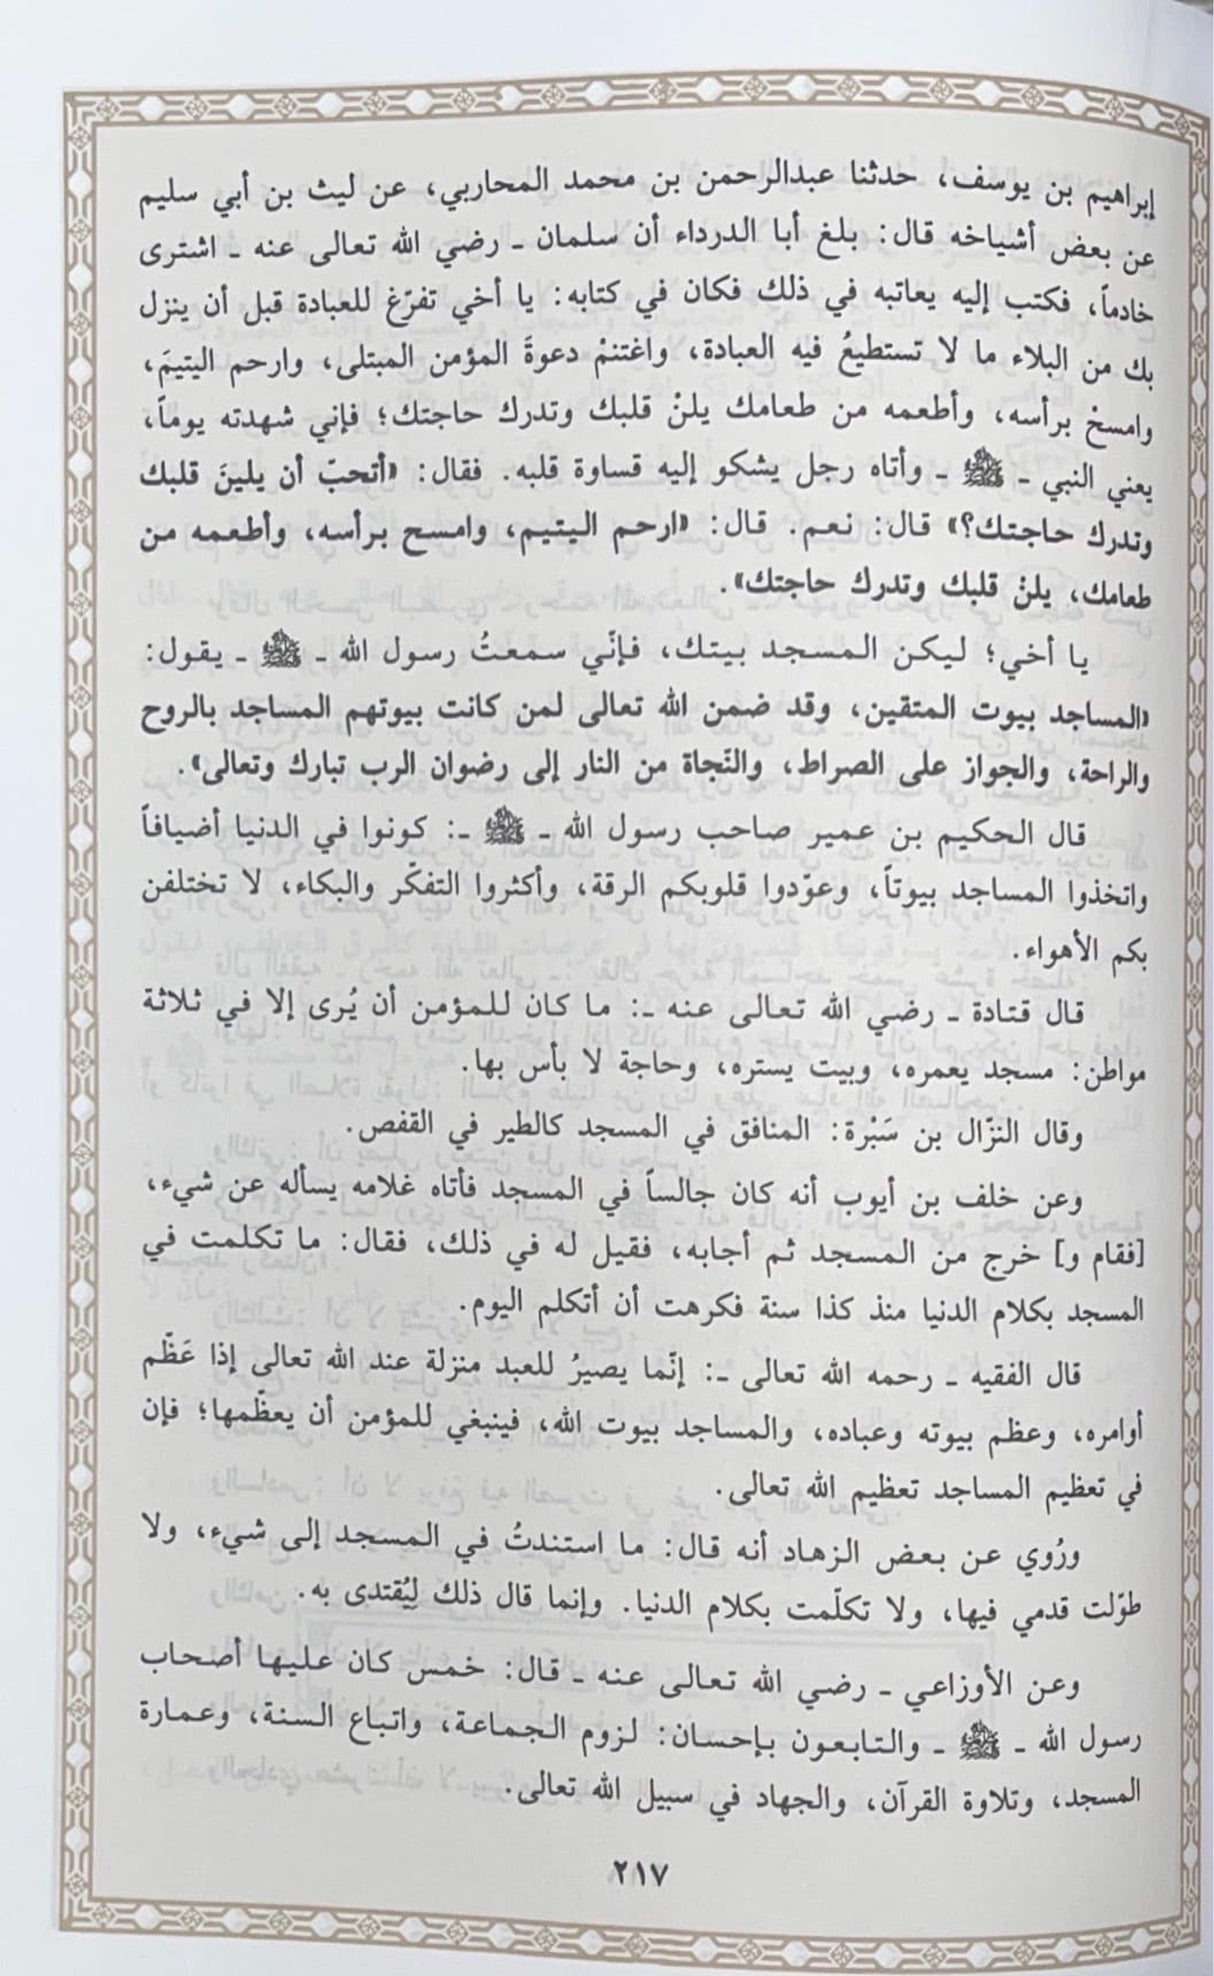 إبراهيم بن يوسف، حدثنا عبدالرحمن بن محمد المحاربي، عن ليث بن أبي سليم
عن بعض أشياخه قال: بلغ أبا الدرداء أن سلمان ـ رضي الله تعالى عنه ـ اشترى
خادماً، فكتب إليه يعاتبه في ذلك فكان في كتابه: يا أخي تفرّغ للعبادة قبل أن ينزل
بك من البلاء ما لا تستطيعُ فيه العبادة، واغتنمْ دعوةَ المؤمن المبتلى، وارحم اليتيمَ،
وامسحْ برأسه، وأطعمه من طعامك يلنْ قلبك وتدرك حاجتك؛ فإني شهدته يوماً،
يعني النبي ـ ﷺ ـ وأتاه رجل يشكو إليه قساوة قلبه. فقال: «أتحبّ أن يلينَ قلبك
وتدرك حاجتك؟» قال: نعم. قال: «ارحم اليتيم، وامسح برأسه، وأطعمه من
طعامك، يلنْ قلبك وتدرك حاجتك».
يا أخي؛ ليكن المسجد بيتك، فإنّي سمعتُ رسول الله ـ ﷺ ـ يقول:
«المساجد بيوت المتقين، وقد ضمن الله تعالى لمن كانت بيوتهم المساجد بالروح
والراحة، والجواز على الصراط، والنّجاة من النار إلى رضوان الرب تبارك وتعالى».
قال الحكيم بن عمير صاحب رسول الله ـ ﷺ ـ: كونوا في الدنيا أضيافاً
واتخذوا المساجد بيوتاً، وعوّدوا قلوبكم الرقة، وأكثروا التفكّر والبكاء، لا تختلفن
بكم الأهواء.
قال قتادة ـ رضي الله تعالى عنه ـ: ما كان للمؤمن أن يُرى إلا في ثلاثة
مواطن: مسجد يعمره، وبيت يستره، وحاجة لا بأس بها.
وقال النزّال بن سَبْرة: المنافق في المسجد كالطير في القفص.
وعن خلف بن أيوب أنه كان جالساً في المسجد فأتاه غلامه يسأله عن شيء،
[فقام و] خرج من المسجد ثم أجابه، فقيل له في ذلك، فقال: ما تكلمت في
المسجد بكلام الدنيا منذ كذا سنة فكرهت أن أتكلم اليوم.
قال الفقيه ـ رحمه الله تعالى ـ: إنّما يصيرُ للعبد منزلة عند الله تعالى إذا عَظّم
أوامره، وعظم بيوته وعباده، والمساجد بيوت الله، فينبغي للمؤمن أن يعظّمها؛ فإن
في تعظيم المساجد تعظيم الله تعالى.
ورُوي عن بعض الزهاد أنه قال: ما استندتُ في المسجد إلى شيء، ولا
طوّلت قدمي فيها، ولا تكلّمت بكلام الدنيا. وإنما قال ذلك لِيُقتدى به.
وعن الأوزاعي ـ رضي الله تعالى عنه ـ قال: خمس كان عليها أصحاب
رسول الله ـ ﷺ ـ والتابعون بإحسان: لزوم الجماعة، واتباع السنة، وعمارة
المسجد، وتلاوة القرآن، والجهاد في سبيل الله تعالى.
٢١٧